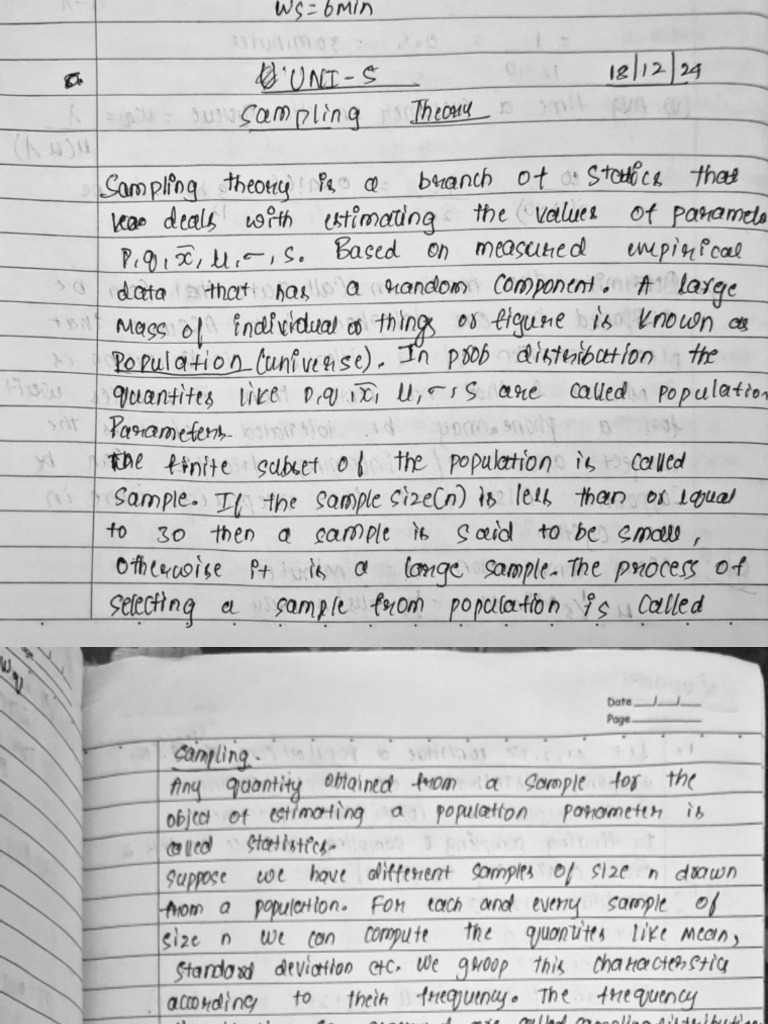 Ws = 6min
UNI-5
18/12/24
Sampling Theory
Sampling theory is a branch of Statics that
deals with estimating the values of paramete
P, q, x̄, μ, σ, S. Based on measured empirical
data that has a random component. A large
Mass of individual or things or figure is known as
Population (universe). In prob distribution the
quantites like p, q, x̄, μ, σ, s are called population
Parameters.
The finite subset of the population is called
Sample. If the sample size(n) is less than or equal
to 30 then a sample is said to be small,
Otherwise it is a large sample. The process of
selecting a sample from population is called
Date __/__/__
Page ______
Sampling.
Any quantity obtained from a sample for the
object of estimating a population parameter is
called Statistics.
Suppose we have different samples of size n drawn
from a population. For each and every sample of
size n we can compute the quantites like mean,
Standard deviation etc. We groop this characterstic
according to their frequency. The frequency
are called sampling distribution